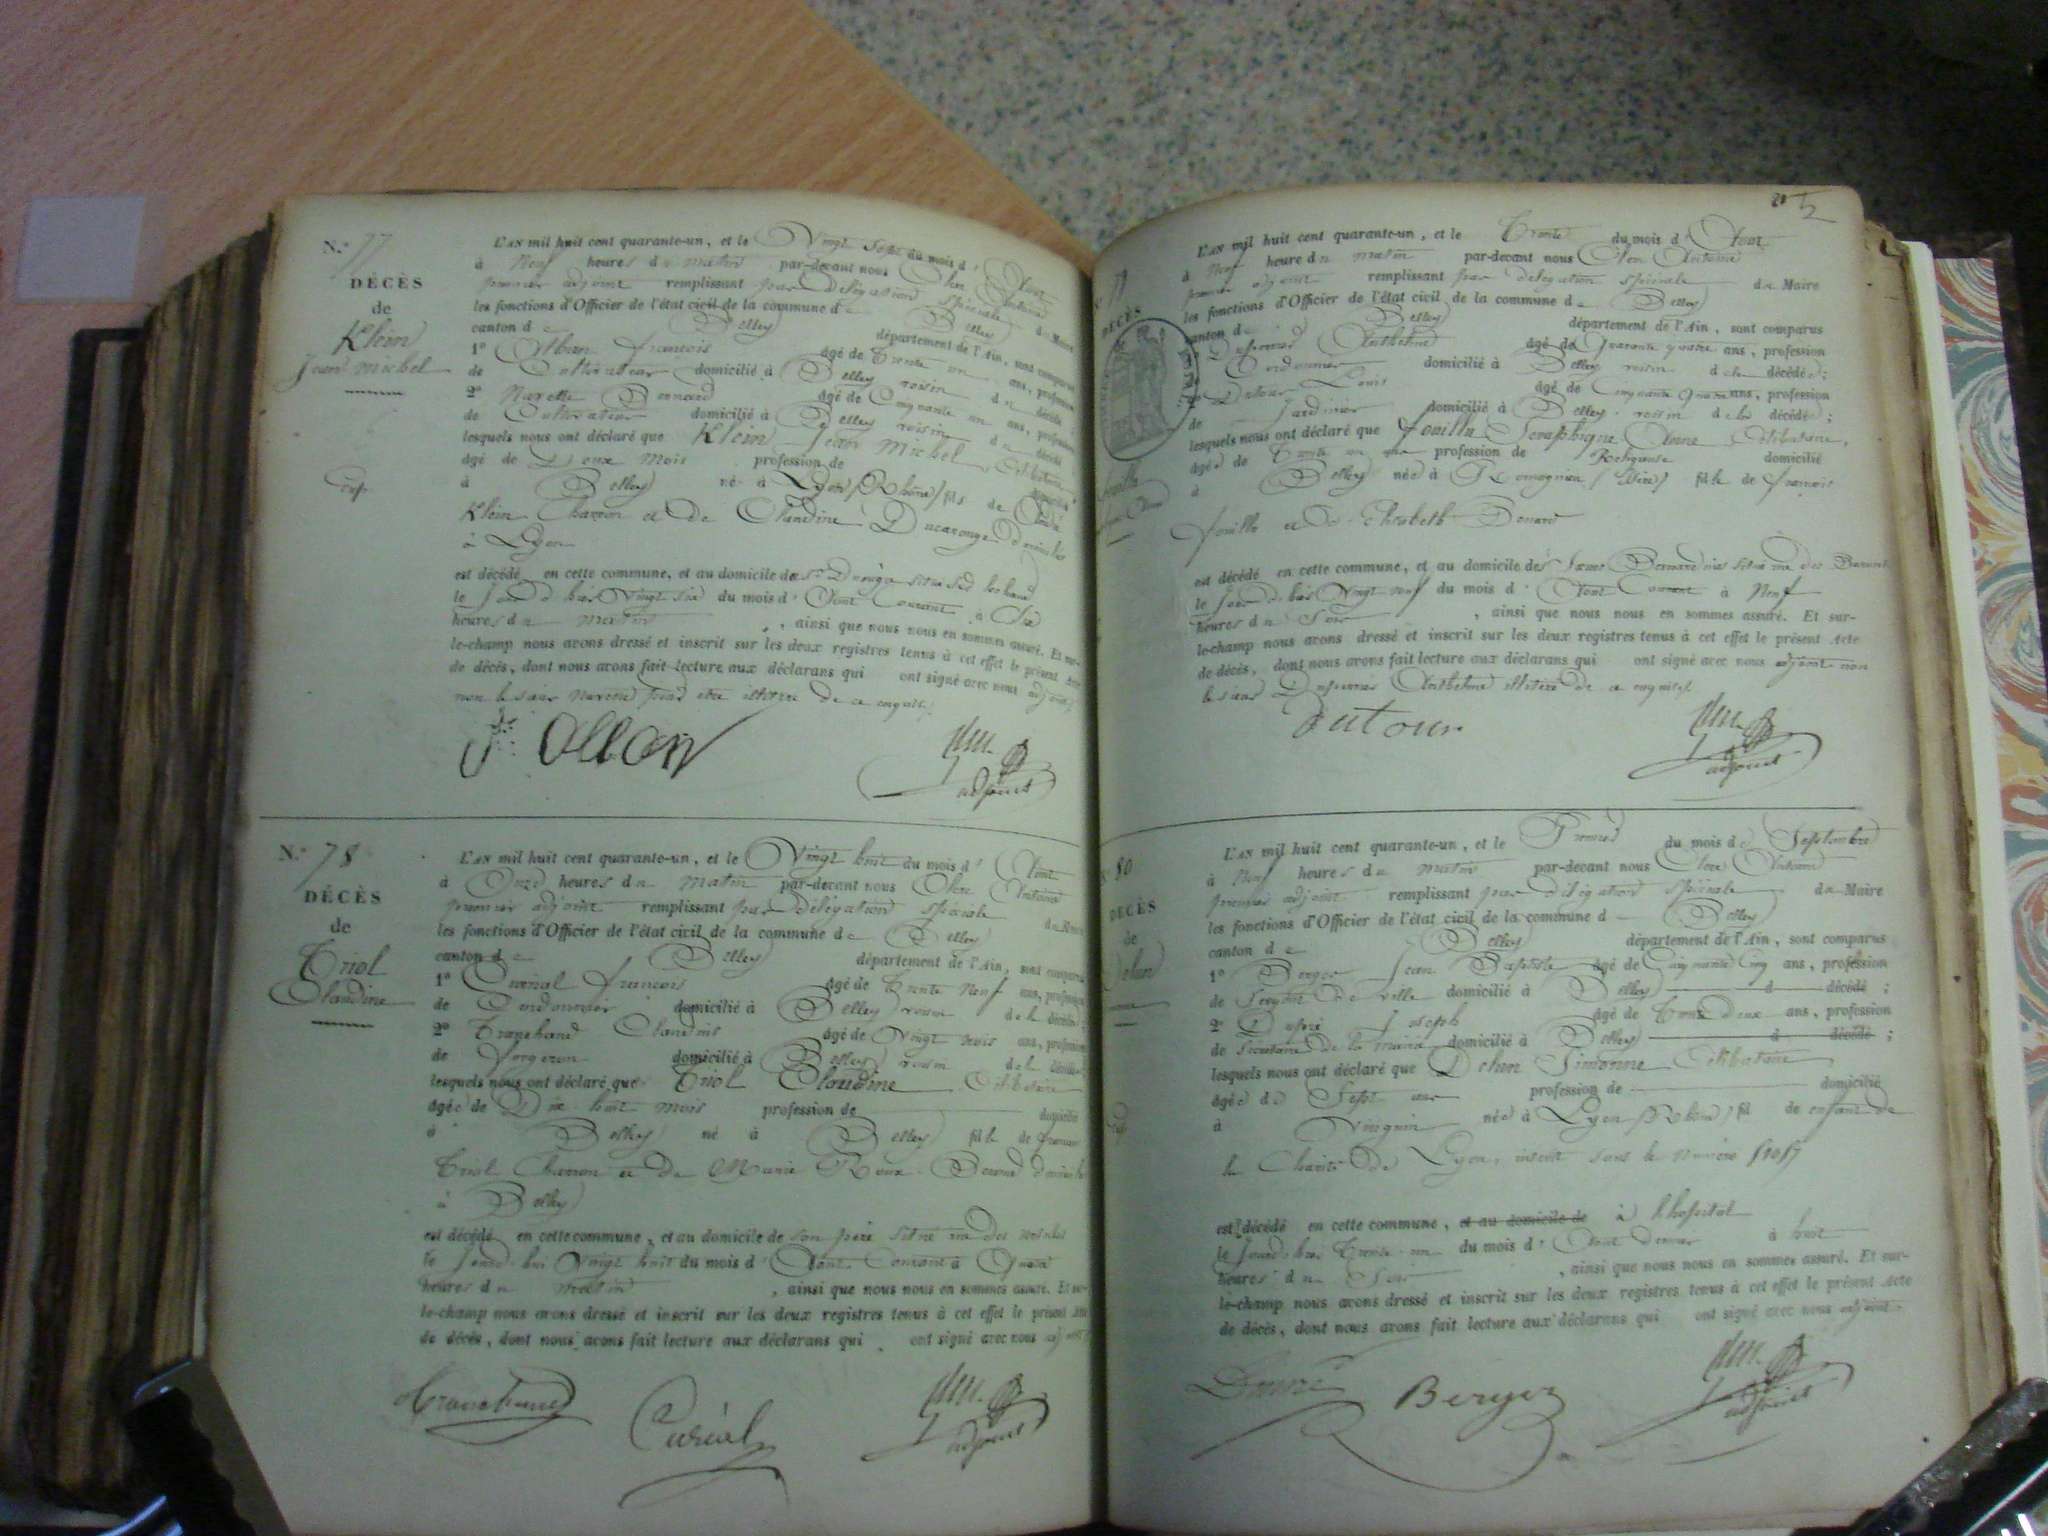 N.° 77
DÉCÈS
de
Klein
Jean Michel
L'AN mil huit cent quarante-un, et le Vingt Sept du mois d' Aout
à Neuf heures du matin par-devant nous Antoine
premier adjoint remplissant par délégation spéciale du Maire
les fonctions d'Officier de l'état civil de la commune de Belley
canton de Belley département de l'Ain, sont comparus
1° françois agé de Trente un ans, profession
de Cultivateur domicilié à Belley voisin du décédé
2° Bernard agé de Cinquante un ans, profession
de Cultivateur domicilié à Belley voisin du décédé
lesquels nous ont déclaré que Klein Jean Michel Célibataire,
agé de mois profession de domicilié
à Belley né à Lyon (Rhône) fils de
Klein Charron et de Claudine Ducarouge domiciliés
à Lyon
est décédé en cette commune, et au domicile de
le Jourd'hui Vingt Six du mois d' Aout Courant à Six
heures du matin, ainsi que nous nous en sommes assuré. Et sur-
le-champ nous avons dressé et inscrit sur les deux registres tenus à cet effet le présent Acte
de décès, dont nous avons fait lecture aux déclarans qui ont signé avec nous adjoint
non le sieur pour etre illitéré de ce enquis
adjoint
N.° 78
DÉCÈS
de
Triol
Claudine
L'AN mil huit cent quarante-un, et le Vingt huit du mois d' Aout
à Onze heures du matin par-devant nous Antoine
premier adjoint remplissant par délégation spéciale du Maire
les fonctions d'Officier de l'état civil de la commune de Belley
canton de Belley département de l'Ain, sont comparus
1° Curial françois agé de Trente Neuf ans, profession
de Cordonnier domicilié à Belley voisin de la décédée;
2° Tranchand Claudius agé de Vingt trois ans, profession
de forgeron domicilié à Belley voisin de la décédée
lesquels nous ont déclaré que Triol Claudine Célibataire
agée de Dix huit mois profession de domicilié
à Belley né à Belley fille de françois
Triol Charron et de Marie Roux domiciliés
à Belley
est décédé en cette commune, et au domicile de son père situé rue des
le Jourd'hui Vingt huit du mois d' Aout Courant à
heures du matin, ainsi que nous nous en sommes assuré. Et sur-
le-champ nous avons dressé et inscrit sur les deux registres tenus à cet effet le présent Acte
de décès, dont nous avons fait lecture aux déclarans qui ont signé avec nous adjoint
Tranchand Curial adjoint
79
DÉCÈS
L'AN mil huit cent quarante-un, et le Trente du mois d' Aout
à Neuf heure du matin par-devant nous Antoine
premier adjoint remplissant par délégation spéciale du Maire
les fonctions d'Officier de l'état civil de la commune de Belley
canton de Belley département de l'Ain, sont comparus
Anthelme agé de Quarante quatre ans, profession
Cordonnier domicilié à Belley voisin de la décédée;
Dutour Louis agé de Cinquante quatre ans, profession
de Jardinier domicilié à Belley voisin de la décédée;
lesquels nous ont déclaré que fouilla Seraphique Anne Célibataire,
agée de Trente un ans profession de Religieuse domicilié
à Belley née à (Isère) fille de françois
fouilla et de Elizabeth
est décédé en cette commune, et au domicile des Sœurs situé rue des
le Jourd'hui Vingt neuf du mois d' Aout Courant à Neuf
heures du Soir, ainsi que nous nous en sommes assuré. Et sur-
le-champ nous avons dressé et inscrit sur les deux registres tenus à cet effet le présent Acte
de décès, dont nous avons fait lecture aux déclarans qui ont signé avec nous adjoint non
le sieur Anthelme illitéré de ce enquis
Dutour adjoint
80
DÉCÈS
de
L'AN mil huit cent quarante-un, et le Premier du mois de Septembre
à Neuf heures du matin par-devant nous Antoine
premier adjoint remplissant par délégation spéciale du Maire
les fonctions d'Officier de l'état civil de la commune de Belley
canton de Belley département de l'Ain, sont comparus
1° Berger Jean Baptiste agé de Cinquante Cinq ans, profession
de Sergent de ville domicilié à Belley d décédé ;
2° Dupré Joseph agé de Trente deux ans, profession
de Secrétaire de la mairie domicilié à Belley d décédé ;
lesquels nous ont déclaré que Simonne Célibataire
agée de Sept ans profession de domicilié
à née à Lyon (Rhône) fil de enfant de
la Charité de Lyon, inscrit sous le numéro
est décédé en cette commune, et au domicile de à l'hospital
le Jourd'hui Trente un du mois d' Aout dernier à huit
heures du Soir, ainsi que nous nous en sommes assuré. Et sur-
le-champ nous avons dressé et inscrit sur les deux registres tenus à cet effet le présent Acte
de décès, dont nous avons fait lecture aux déclarans qui ont signé avec nous adjoint
Dupré Berger adjoint